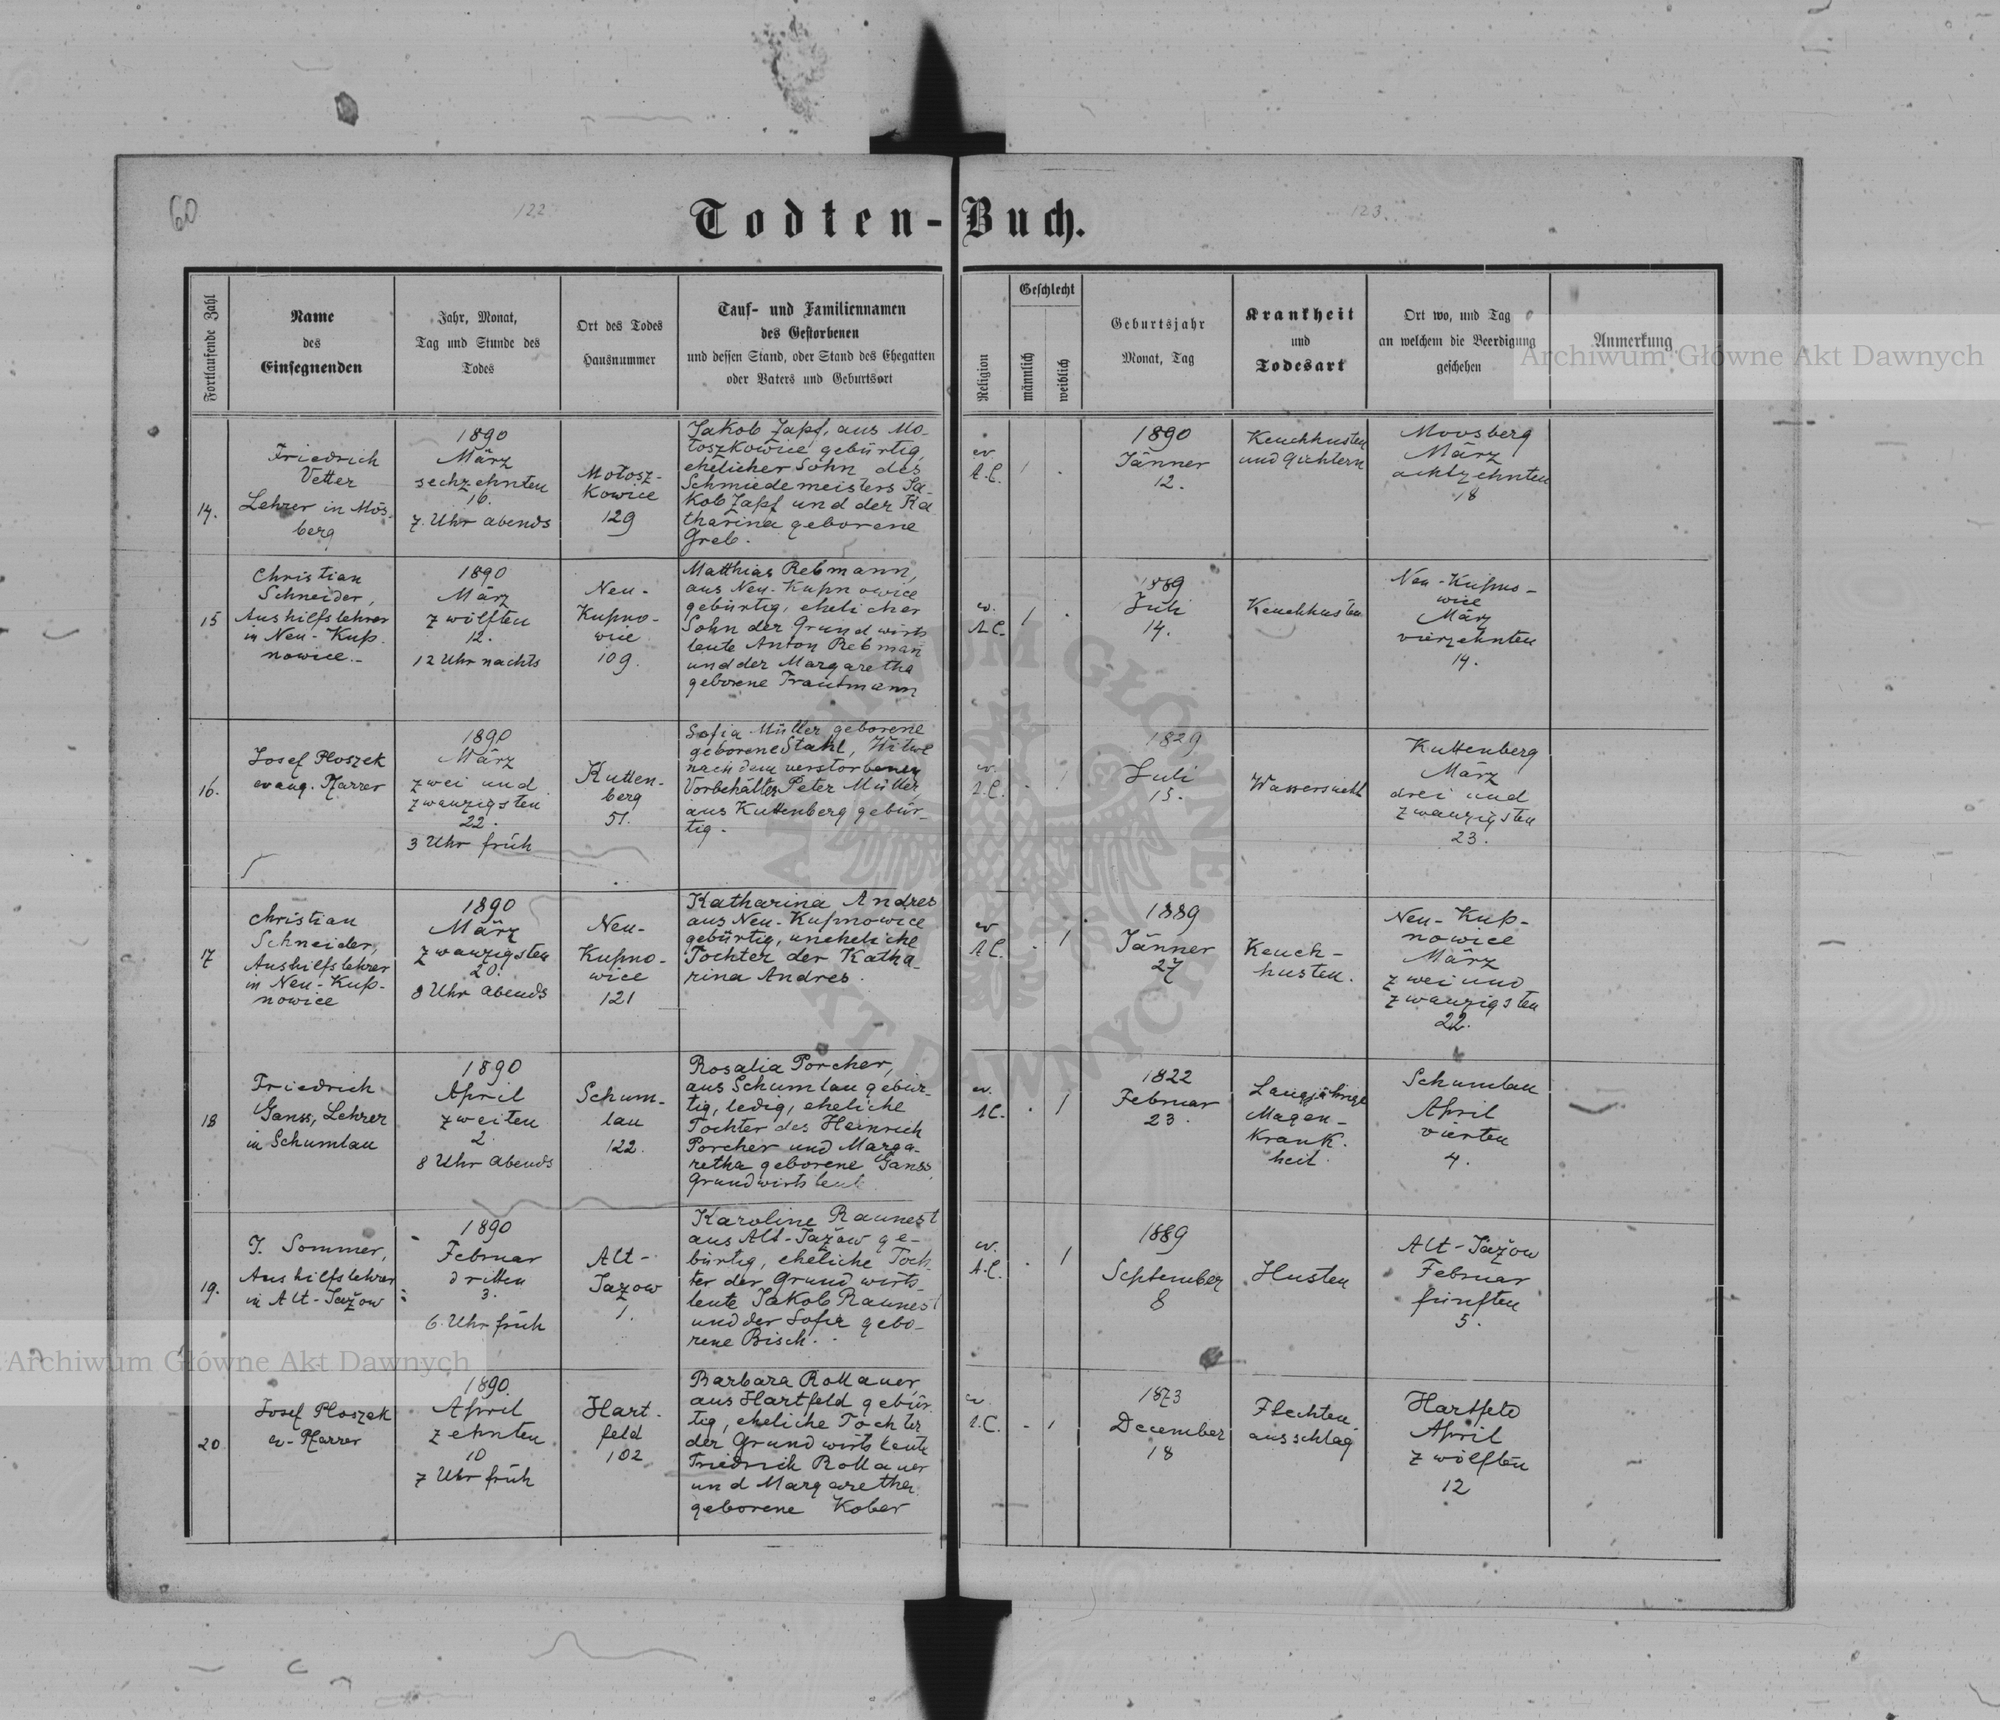 60
122
123.
Todten-Buch.
Fortlaufende Zahl
Name
des
Einsegnenden
Jahr, Monat,
Tag und Stunde des
Todes
Ort des Todes
Hausnummer
Tauf- und Familiennamen
des Gestorbenen
und dessen Stand, oder Stand des Ehegatten
oder Vaters und Geburtsort
Religion
Geschlecht
männlich
weiblich
Geburtsjahr
Monat, Tag
Krankheit
und
Todesart
Ort wo, und Tag
an welchem die Beerdigung
geschehen
Anmerkung
14.
Friedrich
Vetter
Lehrer in Mös-
berg
1890
März
sechzehnten
16.
7. Uhr abends
Motosz-
kowice
129
Jakob Zapf, aus Mo-
toszkowice gebürtig,
ehelicher Sohn des
Schmiedemeisters Ja-
kob Zapf und der Ka
tharina geborene
Greb.
ev.
A.C.
1890
Jänner
12.
Keuchhusten
und Gichtern
Moosberg
März
achtzehnten
18
15
Christian
Schneider,
Aushilfslehrer
in Neu-Kup-
nowice.-
1890
März
zwölften
12.
12 Uhr nachts
Neu-
Kupno-
wice
109.
Matthias Rebmann,
aus Neu-Kupnowice
gebürtig, ehelicher
Sohn der Grundwirts
leute Anton Rebman
und der Margaretha
geborene Trautmann
ev.
A.C.
1889
Juli
14.
Keuchhusten
Neu-Kupno-
wice
März
vierzehnten
14.
16.
Josef Ploszek
evang. Pfarrer
1890
März
zwei und
zwanzigsten
22.
3 Uhr früh
Kutten-
berg
51.
Sofia Müller geborene
geborene Stahl, Witwe
nach dem verstorbenen
Vorbehältler Peter Müller
aus Kuttenberg gebür-
tig.
ev.
A.C.
1829
Juli
15.
Wassersucht
Kuttenberg
März
drei und
zwanzigsten
23.
17
Christian
Schneider,
Aushilfslehrer
in Neu-Kup-
nowice
1890
März
zwanzigsten
20.
8 Uhr abends
Neu-
Kupno-
wice
121
Katharina Andres
aus Neu-Kupnowice
gebürtig, uneheliche
Tochter der Katha-
rina Andres.
ev
A.C.
1889
Jänner
27
Keuch-
husten.
Neu-Kup-
nowice
März
zwei und
zwanzigsten
22.
18
Friedrich
Ganss, Lehrer
in Schumlau
1890
April
zweiten
2.
8 Uhr abends
Schum-
lau
122.
Rosalia Porcher,
aus Schumlau gebür-
tig, ledig, eheliche
Tochter des Heinrich
Porcher und Marga-
retha geborene Ganss,
Grundwirtsleute
ev.
A.C.
1822
Februar
23.
Langjährige
Magen-
krank-
heit.
Schumlau
April
vierten
4.
19.
J. Sommer,
Aushilfslehrer
in Alt-Jažow
1890
Februar
dritten
3.
6. Uhr früh
Alt-
Jazow
1.
Karoline Raunest
aus Alt-Jažow ge-
bürtig, eheliche Toch-
ter der Grundwirts-
leute Jakob Raunest
und der Sofia gebo-
rene Bisch.
ev.
A.C.
1889
September
8
Husten
Alt-Jažow
Februar
fünften
5.
20
Josef Ploszek
ev. Pfarrer
1890.
April
zehnten
10
7 Uhr früh
Hart-
feld
102
Barbara Rollauer,
aus Hartfeld gebür-
tig, eheliche Tochter
der Grundwirtsleute
Friedrich Rollauer
und Margaretha
geborene Kober
ev.
A.C.
1873
December
18
Flechten
ausschlag
Hartfeld
April
zwölften
12
Archiwum Główne Akt Dawnych
Archiwum Główne Akt Dawnych
ARCHIWUM GŁÓWNE AKT DAWNYCH